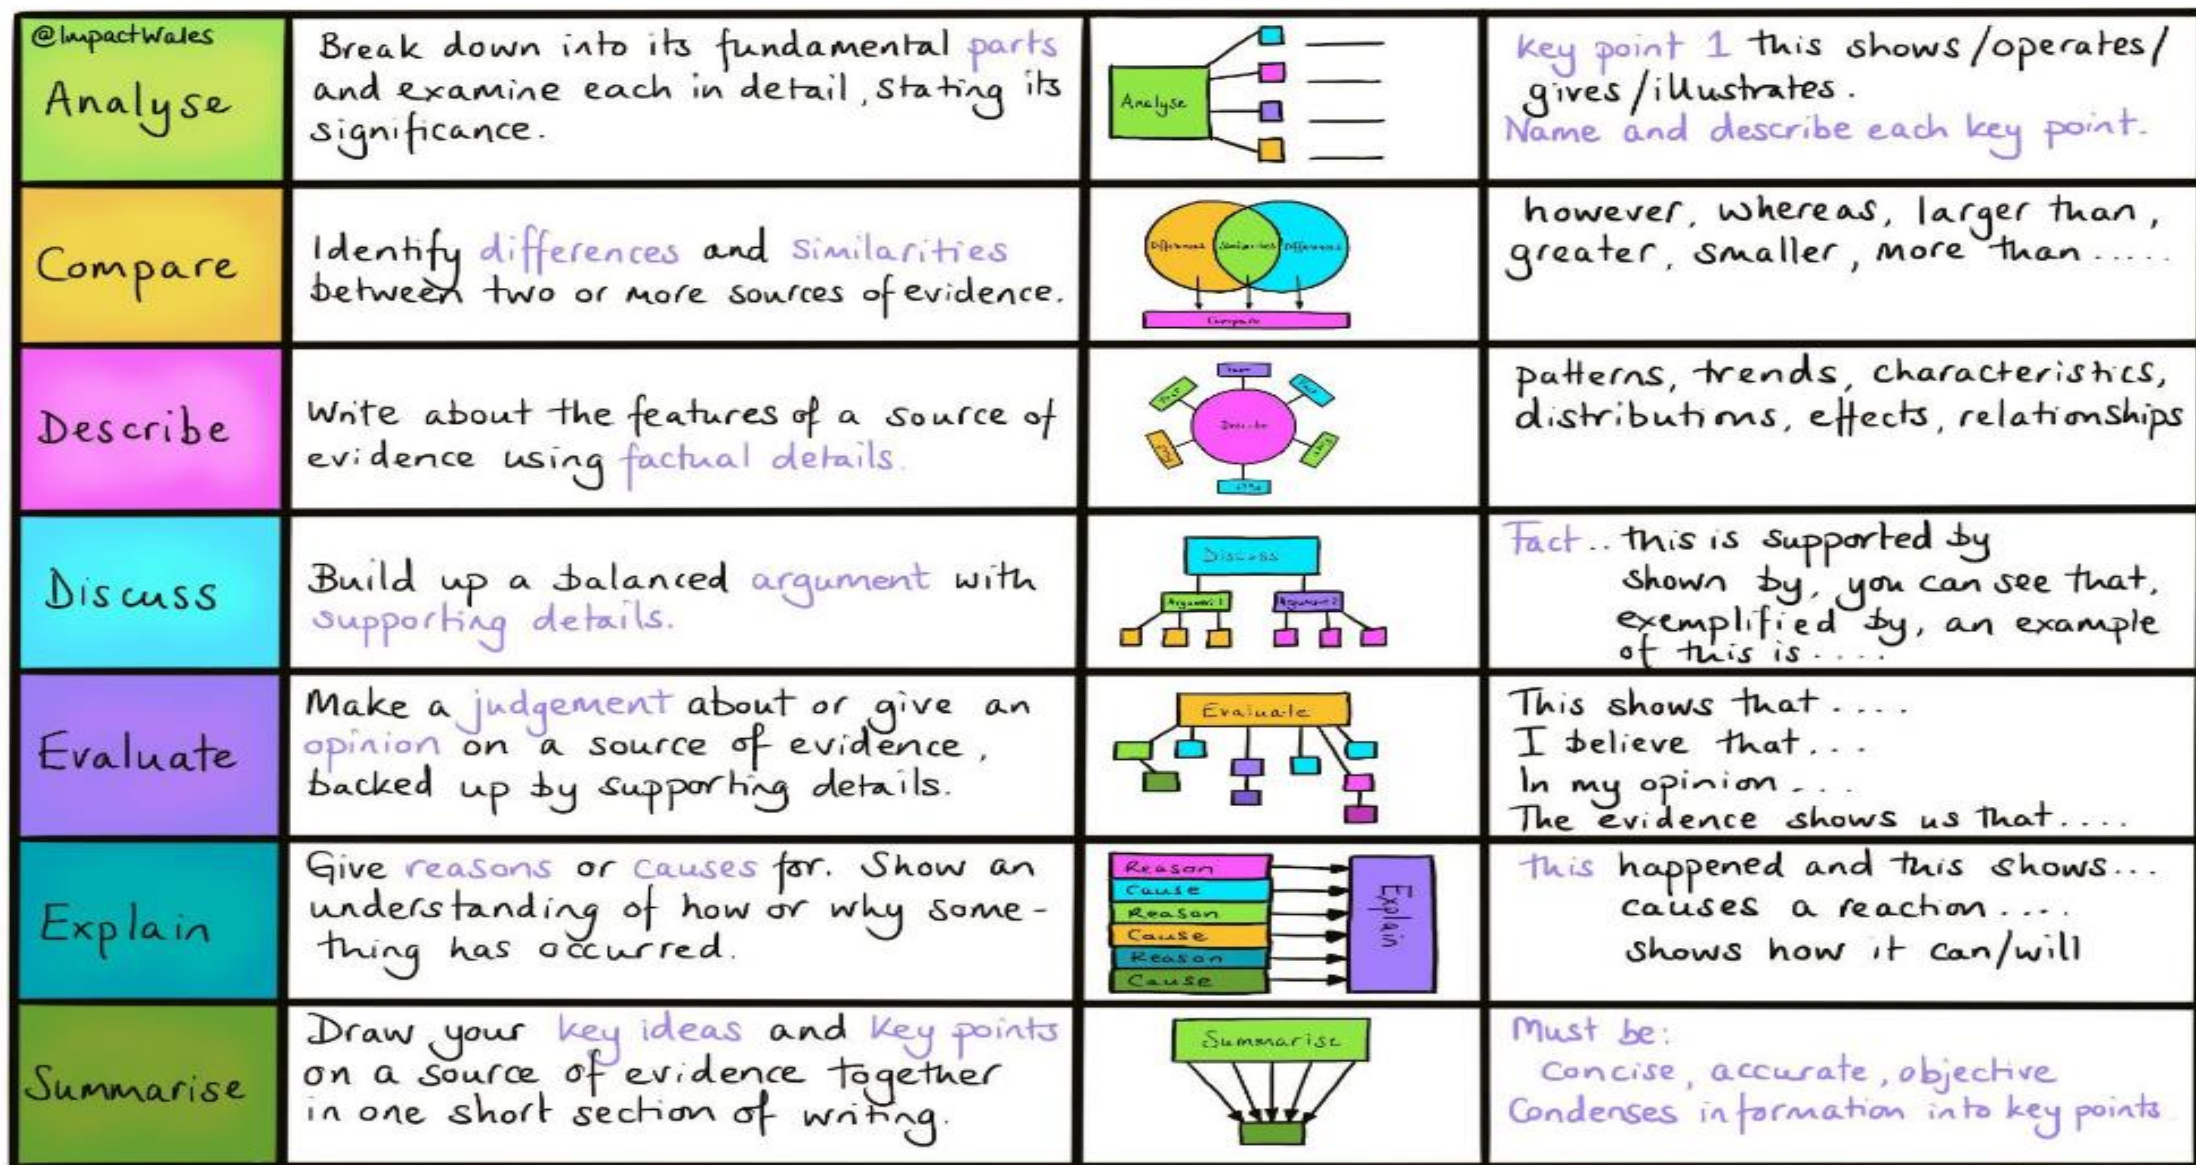 @ImpactWales
Analyse
Break down into its fundamental parts
and examine each in detail, stating its
significance.
Analyse
key point 1 this shows/operates/
gives/illustrates.
Name and describe each key point.
Compare
Identify differences and similarities
between two or more sources of evidence.
Differences Similarities Differences
Compare
however, whereas, larger than,
greater, smaller, more than.....
Describe
Write about the features of a source of
evidence using factual details.
Describe
patterns, trends, characteristics,
distributions, effects, relationships
Discuss
Build up a balanced argument with
supporting details.
Discuss
Argument 1 Argument 2
Fact.. this is supported by
shown by, you can see that,
exemplified by, an example
of this is....
Evaluate
Make a judgement about or give an
opinion on a source of evidence,
backed up by supporting details.
Evaluate
This shows that....
I believe that...
In my opinion...
The evidence shows us that....
Explain
Give reasons or causes for. Show an
understanding of how or why some-
thing has occurred.
Reason
Cause
Reason
Cause
Reason
Cause
Explain
this happened and this shows...
causes a reaction....
shows how it can/will
Summarise
Draw your key ideas and key points
on a source of evidence together
in one short section of writing.
Summarise
Must be:
Concise, accurate, objective
Condenses information into key points